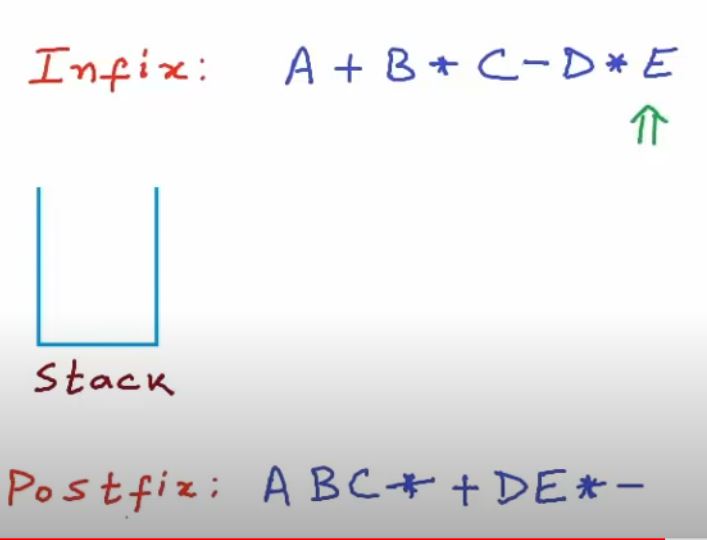 Infix: A + B * C - D * E
Stack
Postfix: A B C * + D E * -